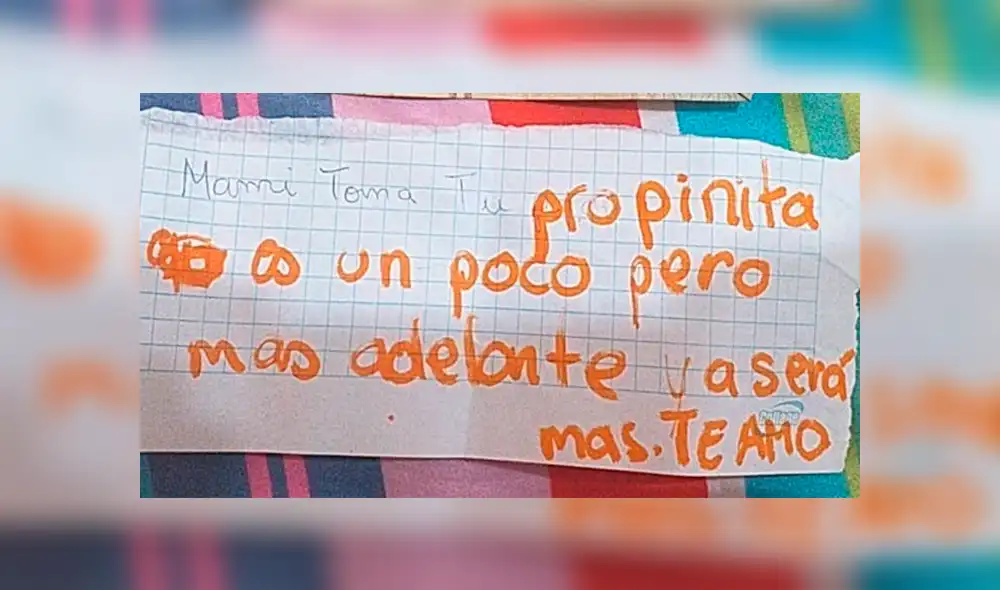 Mami Toma Tu propinita
es un poco pero
mas adelante ya será
mas. TE AMO